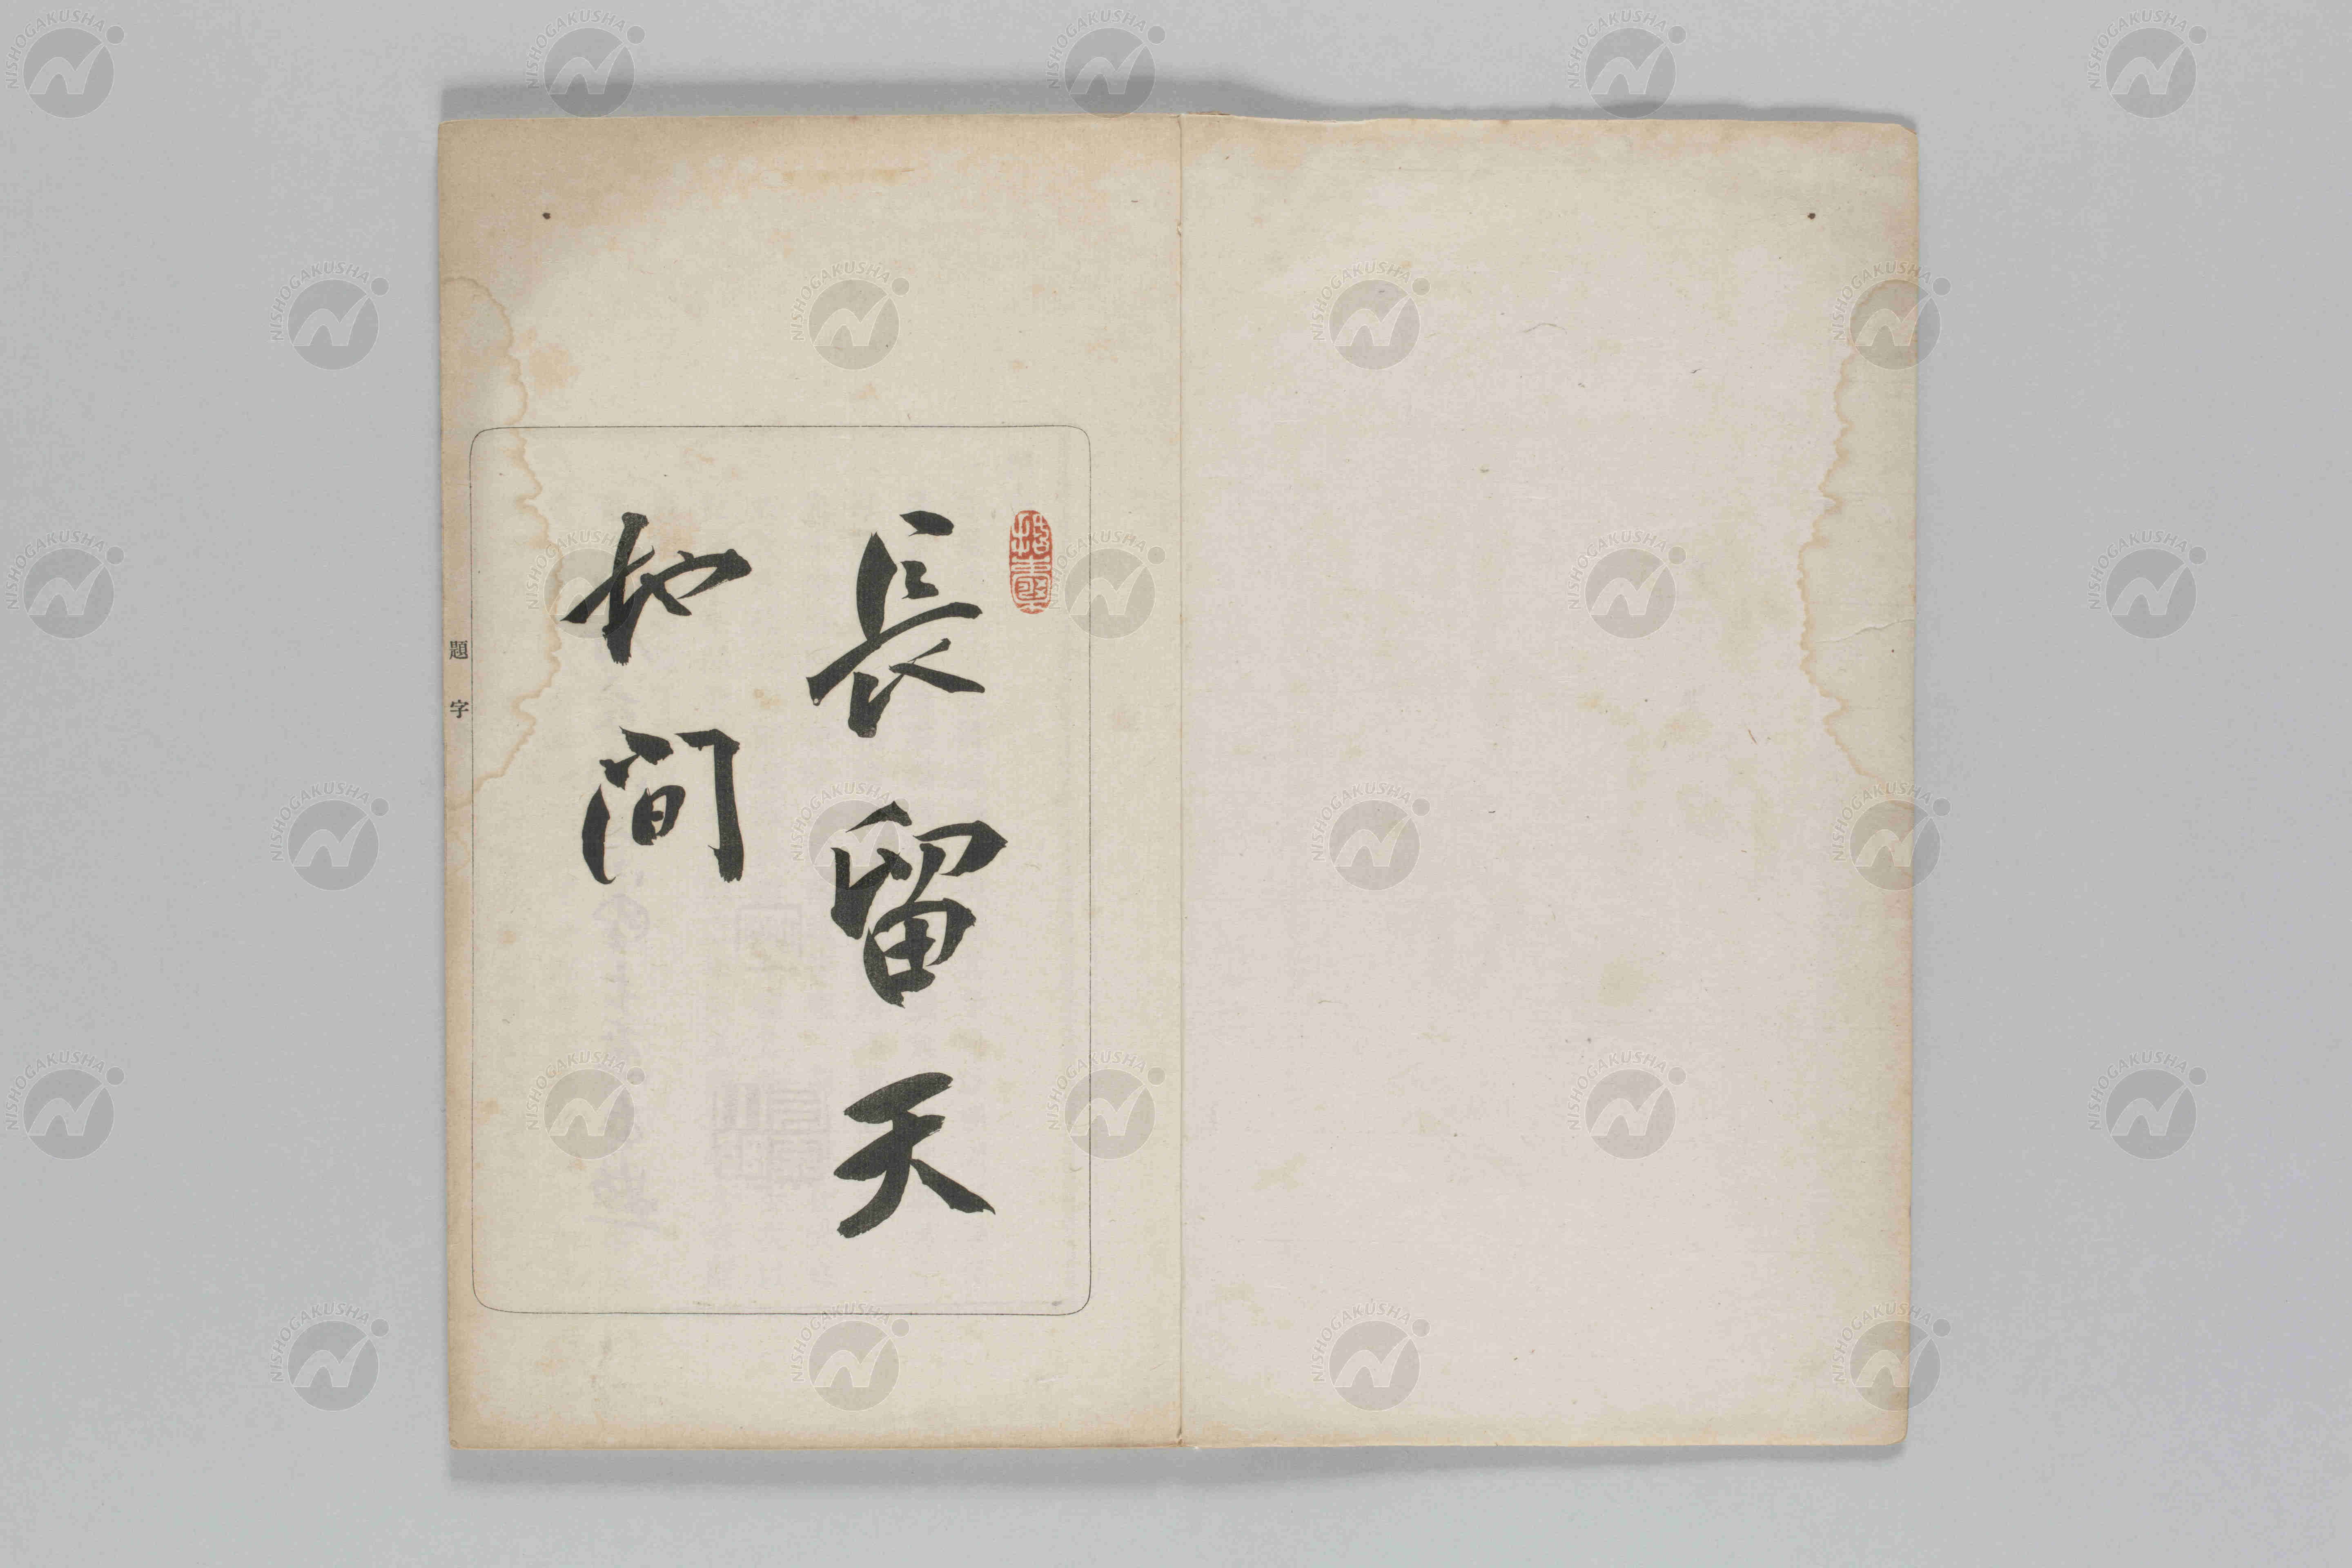 長留天
地間
題字
NISHOGAKUSHA